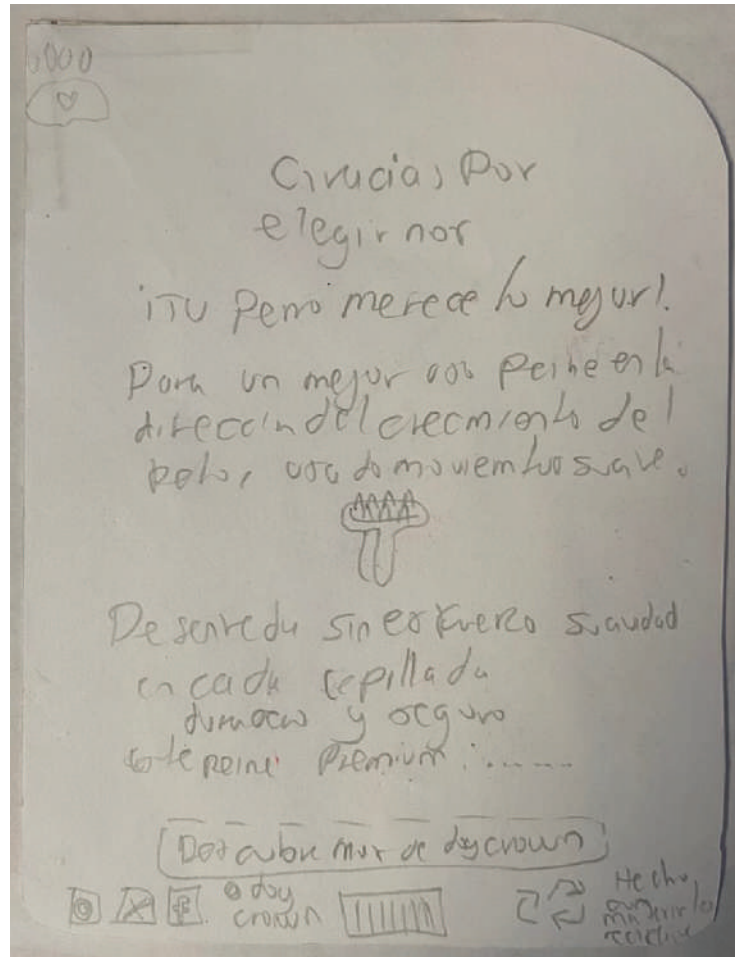 Gracias Por
elegirnos
¡TU Perro merece lo mejor!
Para un mejor uso Peine en la
dirección del crecmiento del
pelo, usado movientos suave.
Desenreda sin esfuerzo suavidad
en cada cepillada
duradero y seguro
este peine Premium:......
Descubre mas de dog crown
@ dog
crown
Hecho
con
reciclable